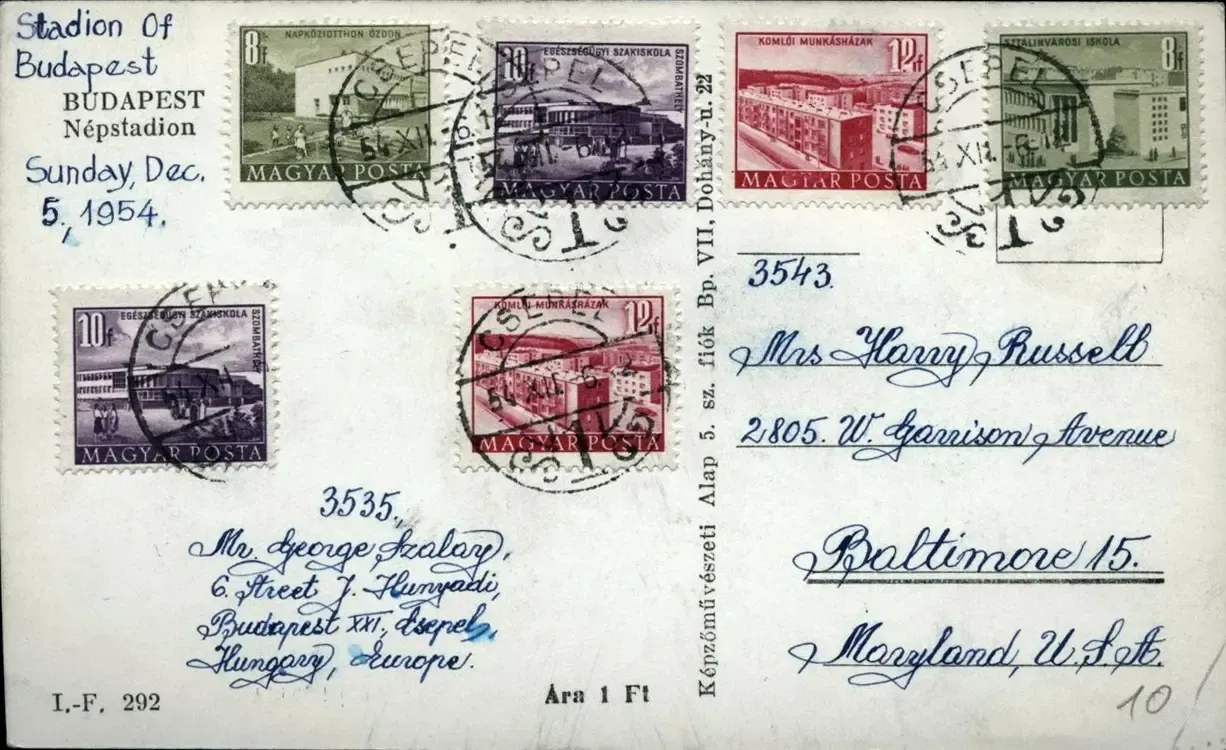 Stadion Of
Budapest
BUDAPEST
Népstadion
Sunday, Dec.
5, 1954.
8f
NAPKÖZIOTTHON ÓZDON
MAGYAR POSTA
CSEPEL
54 XII.
10f
EGÉSZSÉGÜGYI SZAKISKOLA
SZOMBATHELY
MAGYAR POSTA
CSEPEL
54 XII. 6.
KOMLÓI MUNKÁSHÁZAK
12f
MAGYAR POSTA
SZTÁLINVÁROSI ISKOLA
8f
MAGYAR POSTA
CSEPEL
54 XII. 6.
10f
EGÉSZSÉGÜGYI SZAKISKOLA
SZOMBATHELY
MAGYAR POSTA
CSEPEL
54 XII
KOMLÓI MUNKÁSHÁZAK
12f
MAGYAR POSTA
CSEPEL
54 XII. 6.
3535.
Mr. George Szalay,
6. Street J. Hunyadi,
Budapest XXI., Csepel,
Hungary, Europe.
I.-F. 292
Ára 1 Ft
Képzőművészeti Alap 5. sz. fiók Bp. VII, Dohány-u. 22
3543.
Mrs Harry Russell
2805. W. Garrison Avenue
Baltimore 15.
Maryland, U.S.A.
10